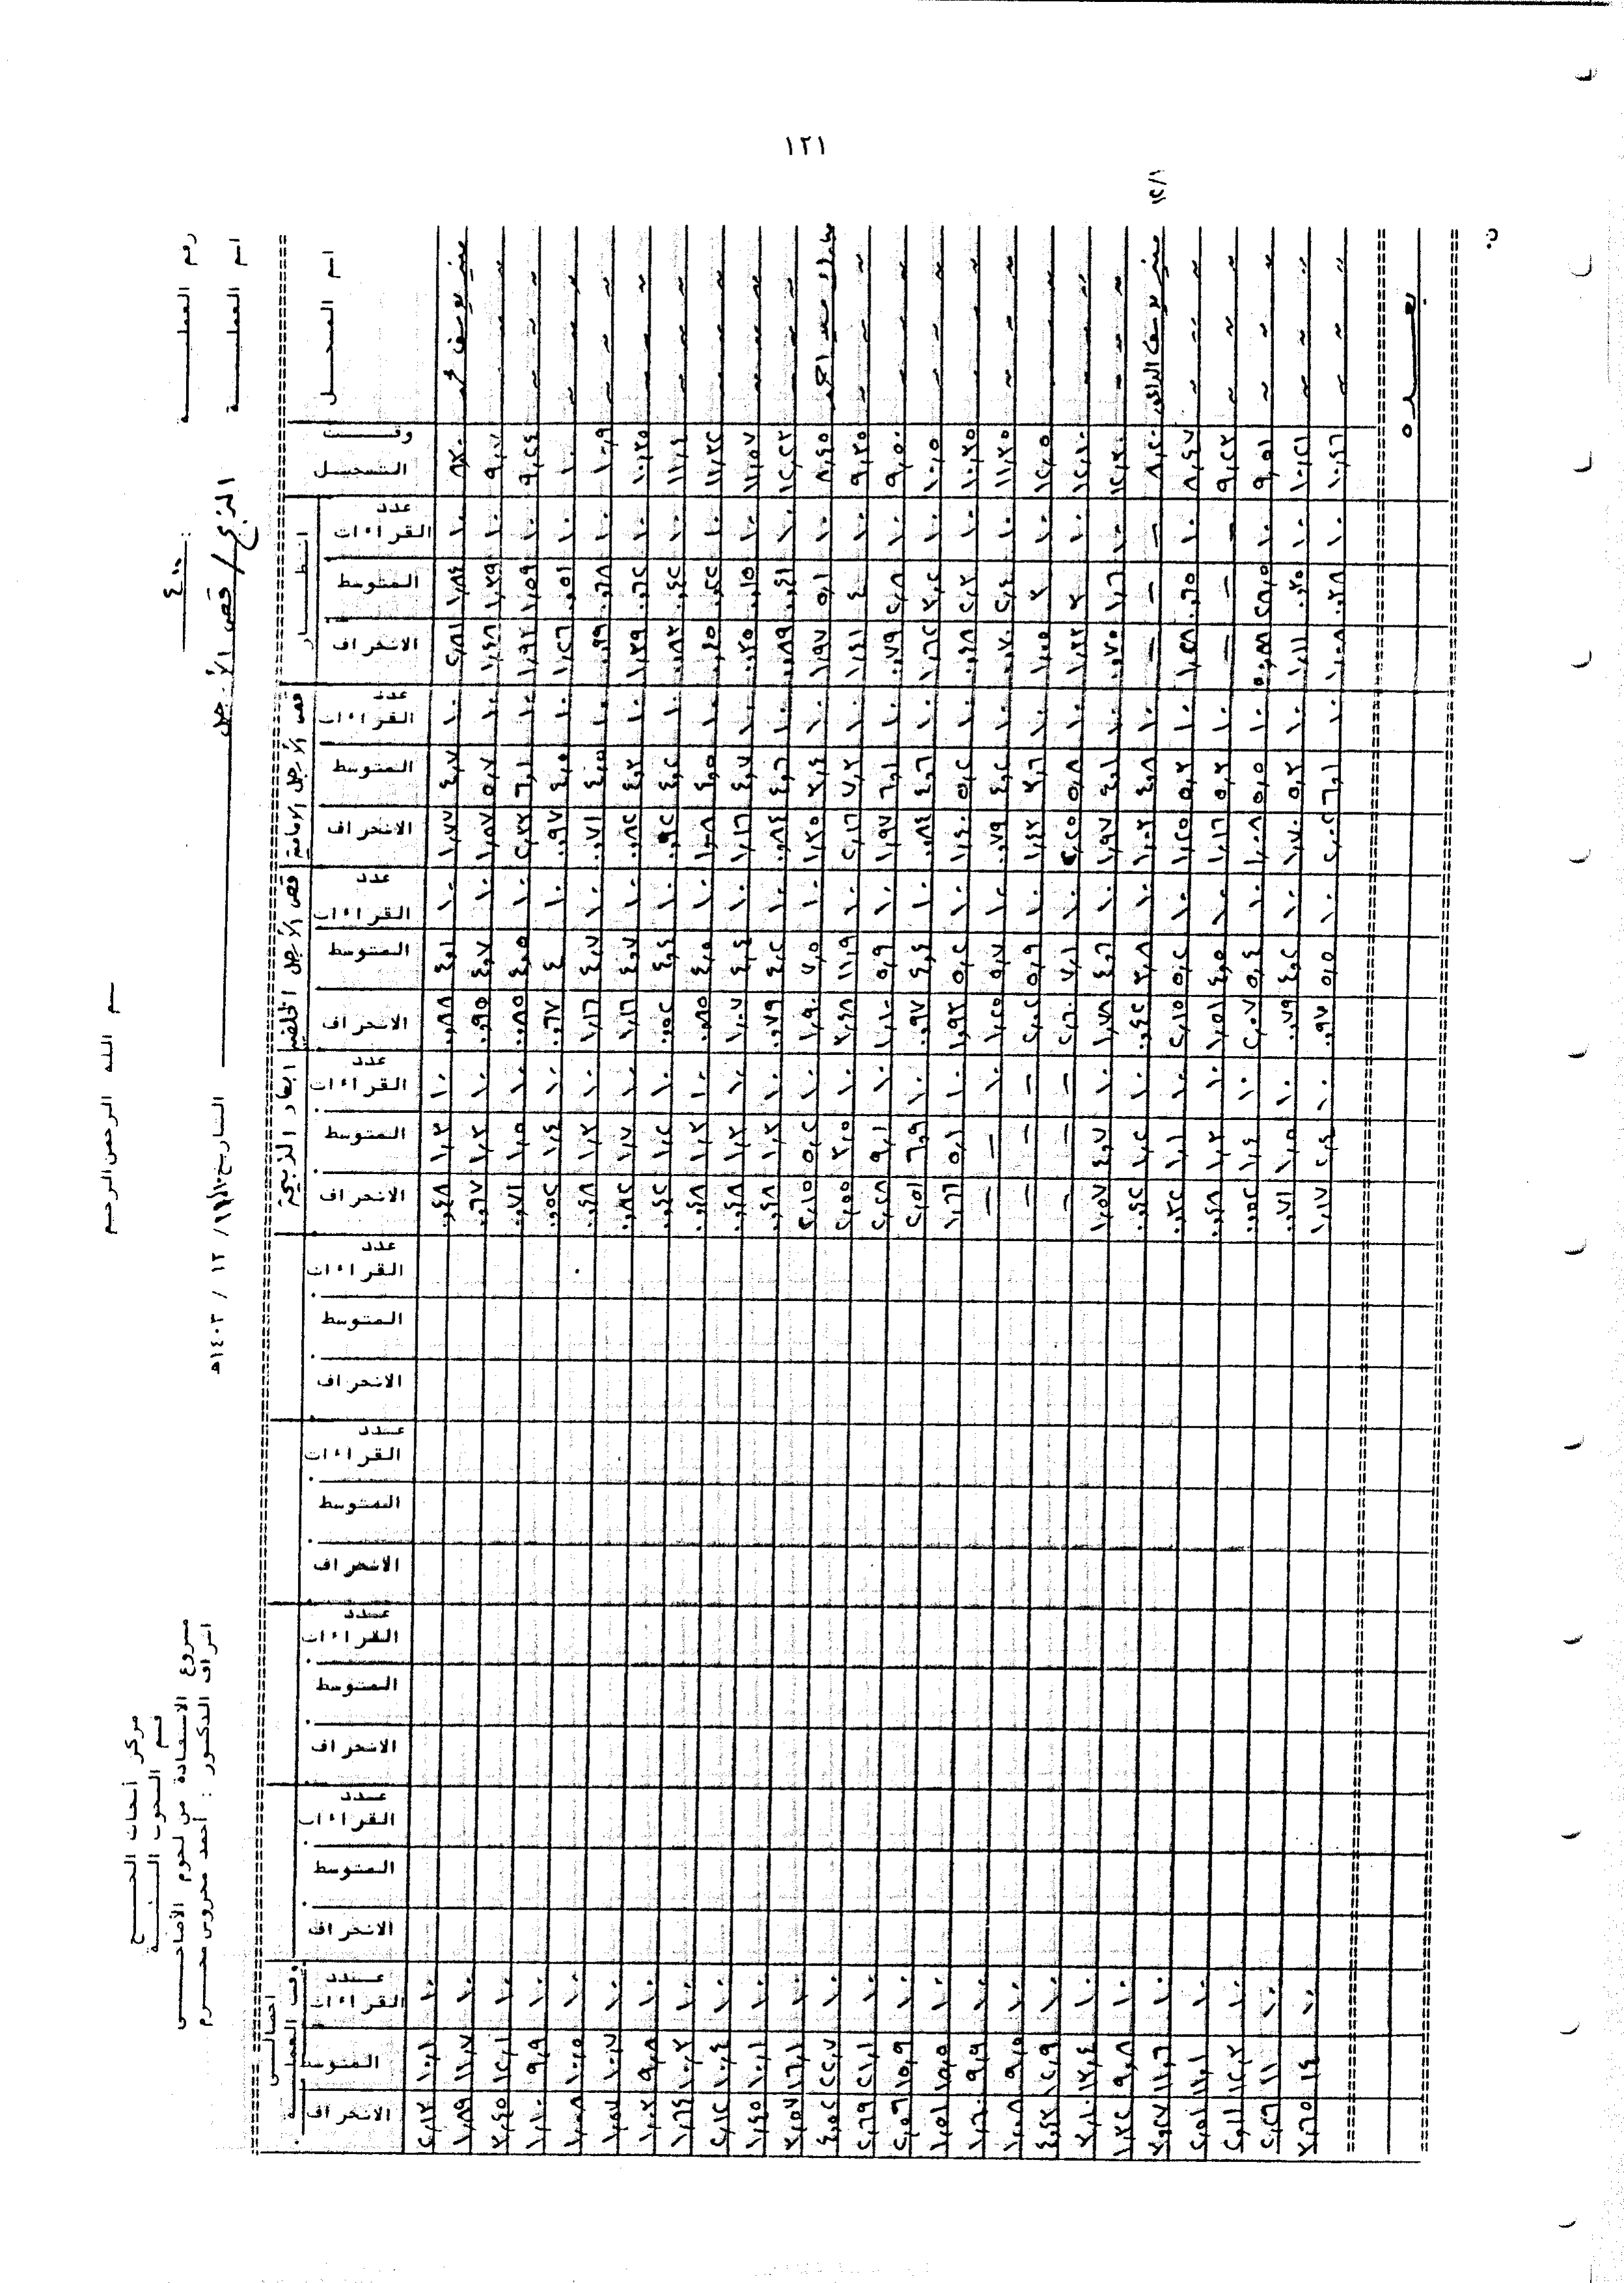 ١٢١
بسم الله الرحمن الرحيم
مركز أبحاث الحج
قسم البحوث البيئية
مشروع الاستفادة من لحوم الأضاحي
اشراف الدكتور : أحمد محروس محرم
رقم العملية : ٤٠٠
اسم العملية الذبح / قص الأرجل التاريخ ١٢ / ١٤٠٣هـ
اسم المسجل وقت التسجيل انتظار قص الأرجل الأمامية قص الأرجل الخلفية ابعاد الذبيحة اجمالي وقت العملية
عدد القراءات المتوسط الانحراف عدد القراءات المتوسط الانحراف عدد القراءات المتوسط الانحراف عدد القراءات المتوسط الانحراف عدد القراءات المتوسط الانحراف عدد القراءات المتوسط الانحراف عدد القراءات المتوسط الانحراف عدد القراءات المتوسط الانحراف عدد القراءات المتوسط الانحراف
منير يوسف محمد ٨,٣٠ ١٠ ١,٨٤ ٢,٨١ ١٠ ٤,٧ ١,٧٧ ١٠ ٤,١ ٠,٨٨ ١٠ ١,٣ ٠,٤٨ ١٠ ١٠,١ ٢,١٣
٩,٠٧ ١٠ ١,٣٩ ١,٤٨ ١٠ ٥,٧ ١,٥٧ ١٠ ٤,٧ ٠,٩٥ ١٠ ١,٣ ٠,٦٧ ١٠ ١١,٧ ١,٨٩
٩,٢٤ ١٠ ١,٥٩ ١,٩٢ ١٠ ٦,١ ٢,٣٣ ١٠ ٤,٥ ٠,٨٥ ١٠ ١,٥ ٠,٧١ ١٠ ١٢,١ ٢,٤٥
١٠ ١٠ ٠,٥١ ١,٢٦ ١٠ ٤,٥ ٠,٩٧ ١٠ ٤ ٠,٦٧ ١٠ ١,٤ ٠,٥٢ ١٠ ٩,٩ ١,١٠
١٠,٠٩ ١٠ ٠,٦٨ ٠,٩٩ ١٠ ٤,٥ ٠,٧١ ١٠ ٤,٧ ١,١٦ ١٠ ١,٣ ٠,٤٨ ١٠ ١٠,٥ ١,٠٨
١٠,٢٥ ١٠ ٠,٦٢ ١,٣٩ ١٠ ٤,٣ ٠,٨٢ ١٠ ٤,٧ ١,١٦ ١٠ ١,٧ ٠,٨٢ ١٠ ١٠,٧ ١,٥٧
١١,٠٤ ١٠ ٠,٤٢ ٠,٨٣ ١٠ ٤,٢ ٠,٩٢ ١٠ ٤,٤ ٠,٥٢ ١٠ ١,٢ ٠,٤٢ ١٠ ٩,٨ ١,٠٣
١١,٣٢ ١٠ ٠,٢٢ ٠,٤٥ ١٠ ٤,٥ ١,٠٨ ١٠ ٤,٥ ٠,٨٥ ١٠ ١,٣ ٠,٤٨ ١٠ ١٠,٣ ١,٦٤
١١,٥٧ ١٠ ٠,١٥ ٠,٣٥ ١٠ ٤,٧ ١,١٦ ١٠ ٤,٤ ١,٠٧ ١٠ ١,٣ ٠,٤٨ ١٠ ١٠,٤ ٢,١٢
١٢,٢٣ ١٠ ٠,٤١ ٠,٨٩ ١٠ ٤,٦ ٠,٨٤ ١٠ ٤,٢ ٠,٧٩ ١٠ ١,٣ ٠,٤٨ ١٠ ١٠,١ ١,٤٥
مبارك سعيد احمد ٨,٤٥ ١٠ ٥,١ ١,٩٧ ١٠ ٣,٤ ١,٣٥ ١٠ ٧,٥ ١,٩٠ ١٠ ٥,٢ ٢,١٥ ١٠ ١٦,١ ٣,٥٧
٩,٢٥ ١٠ ٤ ١,٤١ ١٠ ٧,٣ ٢,١٦ ١٠ ١١,٩ ٣,٤٨ ١٠ ٣,٥ ٢,٥٥ ١٠ ٢٢,٧ ٤,٥٢
٩,٥٠ ١٠ ٢,٨ ٠,٧٩ ١٠ ٦,١ ١,٩٧ ١٠ ٥,٩ ١,١٠ ١٠ ٩,١ ٢,٢٨ ١٠ ٢١,١ ٢,٦٩
١٠,٠٥ ١٠ ٣,٢ ١,٦٢ ١٠ ٤,٦ ٠,٨٤ ١٠ ٤,٤ ٠,٩٧ ١٠ ٦,٩ ٢,٥١ ١٠ ١٥,٩ ٢,٥٦
١٠,٣٥ ١٠ ٢,٣ ٠,٤٨ ١٠ ٥,٢ ١,٤٠ ١٠ ٥,٢ ١,٩٣ ١٠ ٥,١ ١,٦٦ ١٠ ١٥,٥ ١,٥١
١١,٢٥ ١٠ ٢,٤ ٠,٧٠ ١٠ ٤,٢ ٠,٧٩ ١٠ ٥,٧ ١,٢٥ ١٠ — — ١٠ ٩,٩ ١,٦٠
١٢,٠٥ ١٠ ٣ ١,٠٥ ١٠ ٣,٦ ١,٤٢ ١٠ ٥,٩ ٢,٠٢ — — — ١٠ ٩,٥ ١,٠٨
١٢,١٠ ١٠ ٣ ١,٢٣ ١٠ ٥,٨ ٢,٢٥ ١٠ ٧,١ ٢,٦٠ — — — ١٠ ١٢,٩ ٤,٤٣
١٢,٣٠ ١٠ ١,٦ ٠,٧٠ ١٠ ٤,١ ١,٩٧ ١٠ ٤,٦ ١,٧٨ ١٠ ٤,٧ ١,٥٧ ١٠ ١٣,٤ ٣,١٠
١٢/١ منير يوسف ٨,٢٠ — — — ١٠ ٤,٨ ١,٠٣ ١٠ ٣,٨ ٠,٤٢ ١٠ ١,٢ ٠,٤٢ ١٠ ٩,٨ ١,٣٢
٨,٤٧ ١٠ ٠,٦٥ ١,٣٨ ١٠ ٥,٣ ١,٢٥ ١٠ ٥,٢ ٢,١٥ ١٠ ١,١ ٠,٣٢ ١٠ ١١,٦ ٣,٢٧
٩,٢٣ — — — ١٠ ٥,٣ ١,١٦ ١٠ ٤,٥ ١,٥١ ١٠ ١,٣ ٠,٤٨ ١٠ ١١,١ ٢,٥١
٩,٥١ ١٠ ٢٨,٥ ٥٠,٨٨ ١٠ ٥,٥ ١,٠٨ ١٠ ٥,٤ ٢,٠٧ ١٠ ١,٤ ٠,٥٢ ١٠ ١٢,٣ ٢,١١
١٠,٢١ ١٠ ٠,٣٥ ١,١١ ١٠ ٥,٣ ١,٧٠ ١٠ ٤,٢ ٠,٧٩ ١٠ ١,٥ ٠,٧١ ١٠ ١١ ٢,٢٦
١٠,٤٦ ١٠ ٠,٣٨ ١,٠٨ ١٠ ٦,١ ٢,٠٢ ١٠ ٥,٥ ٠,٩٧ ١٠ ٢,٤ ١,١٧ ١٠ ١٤ ٣,٦٥
بعده